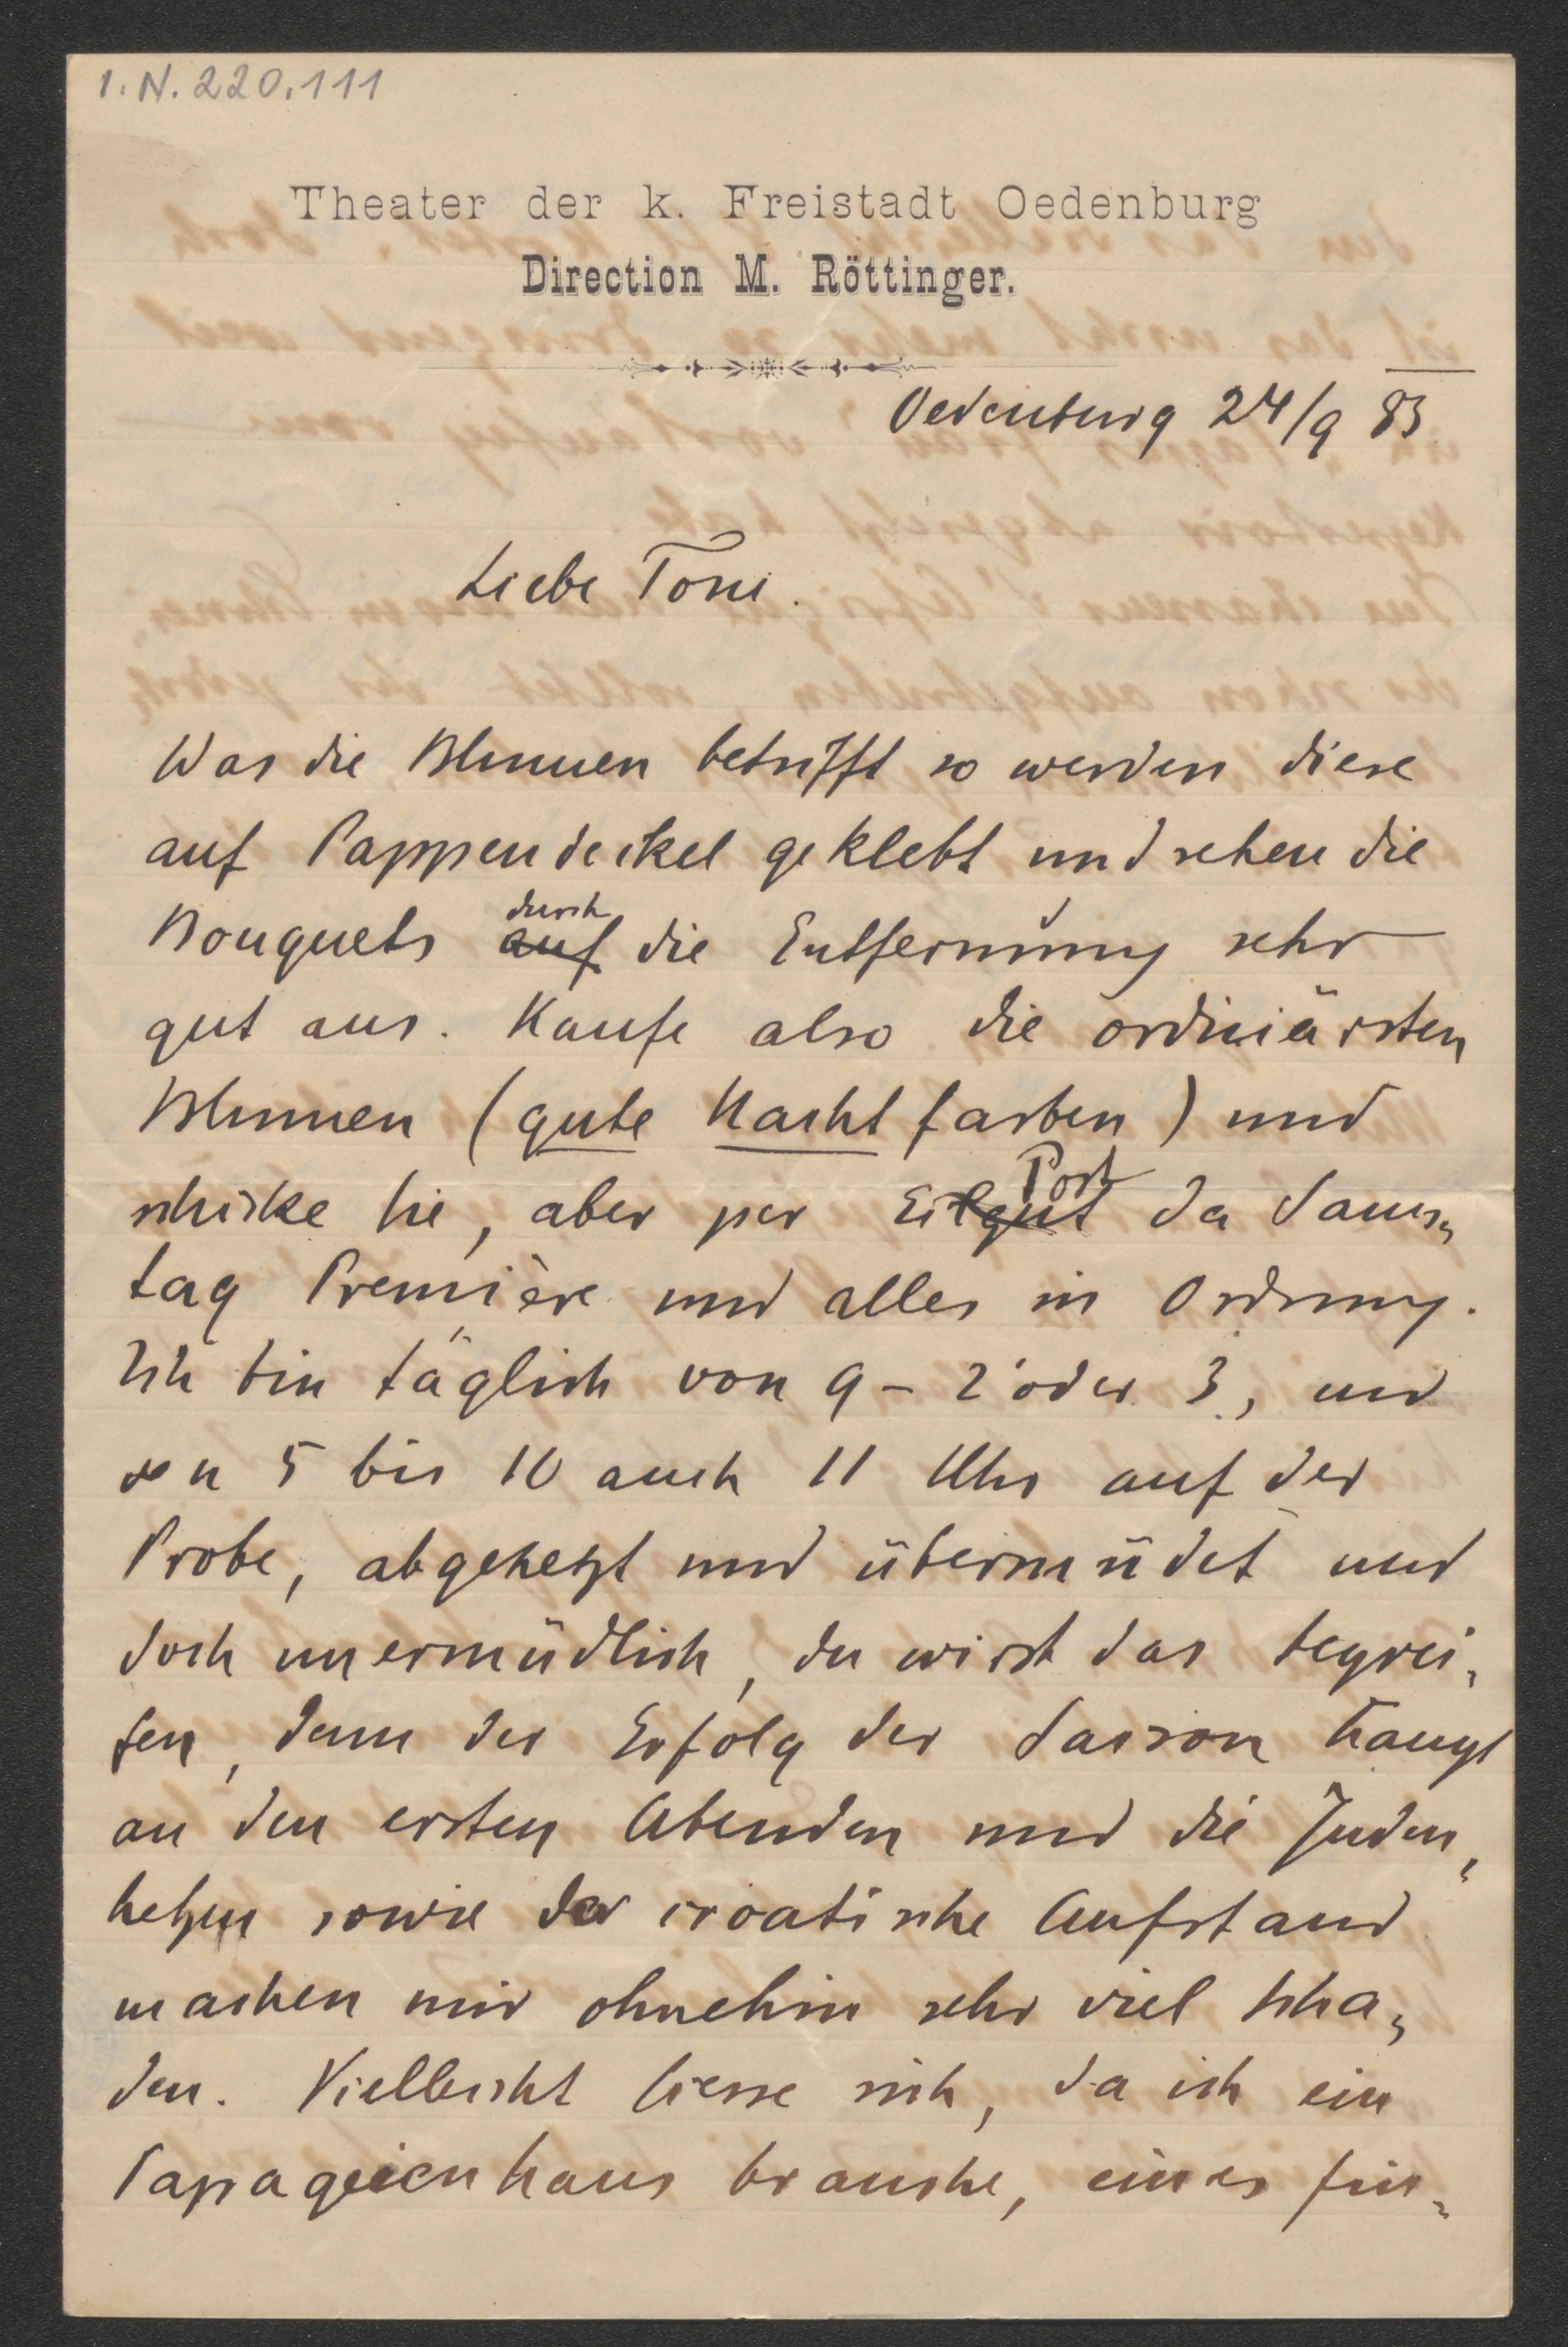 I. N. 220.111
Theater der k. Freistadt Oedenburg
Direction M. Röttinger.
Oedenburg 24/9 83
Liebe Toni.
Was die Blumen betrifft so werden diese
auf Pappendeckel geklebt und sehen die
Bouquets auf durch die Entfernung sehr
gut aus. Kaufe also die ordinärsten
Blumen (gute Nacht farben) und
schicke sie, aber per Eilgut Post da Sams„
tag Première und alles in Ordnung.
Ich bin täglich von 9 – 2 oder 3, und
von 5 bis 10 auch 11 Uhr auf der
Probe, abgehetzt und übermüdet und
doch unermüdlich, du wirst das begrei„
fen, denn der Erfolg der Saison hängt
an den ersten Abenden und die Juden„
hetzen sowie der croatische Aufstand
machen mir ohnehin sehr viel Scha„
den. Vielleicht liesse sich, da ich ein
Papageienhaus brauche, eines fin„